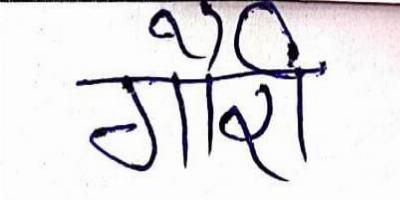 गौरी